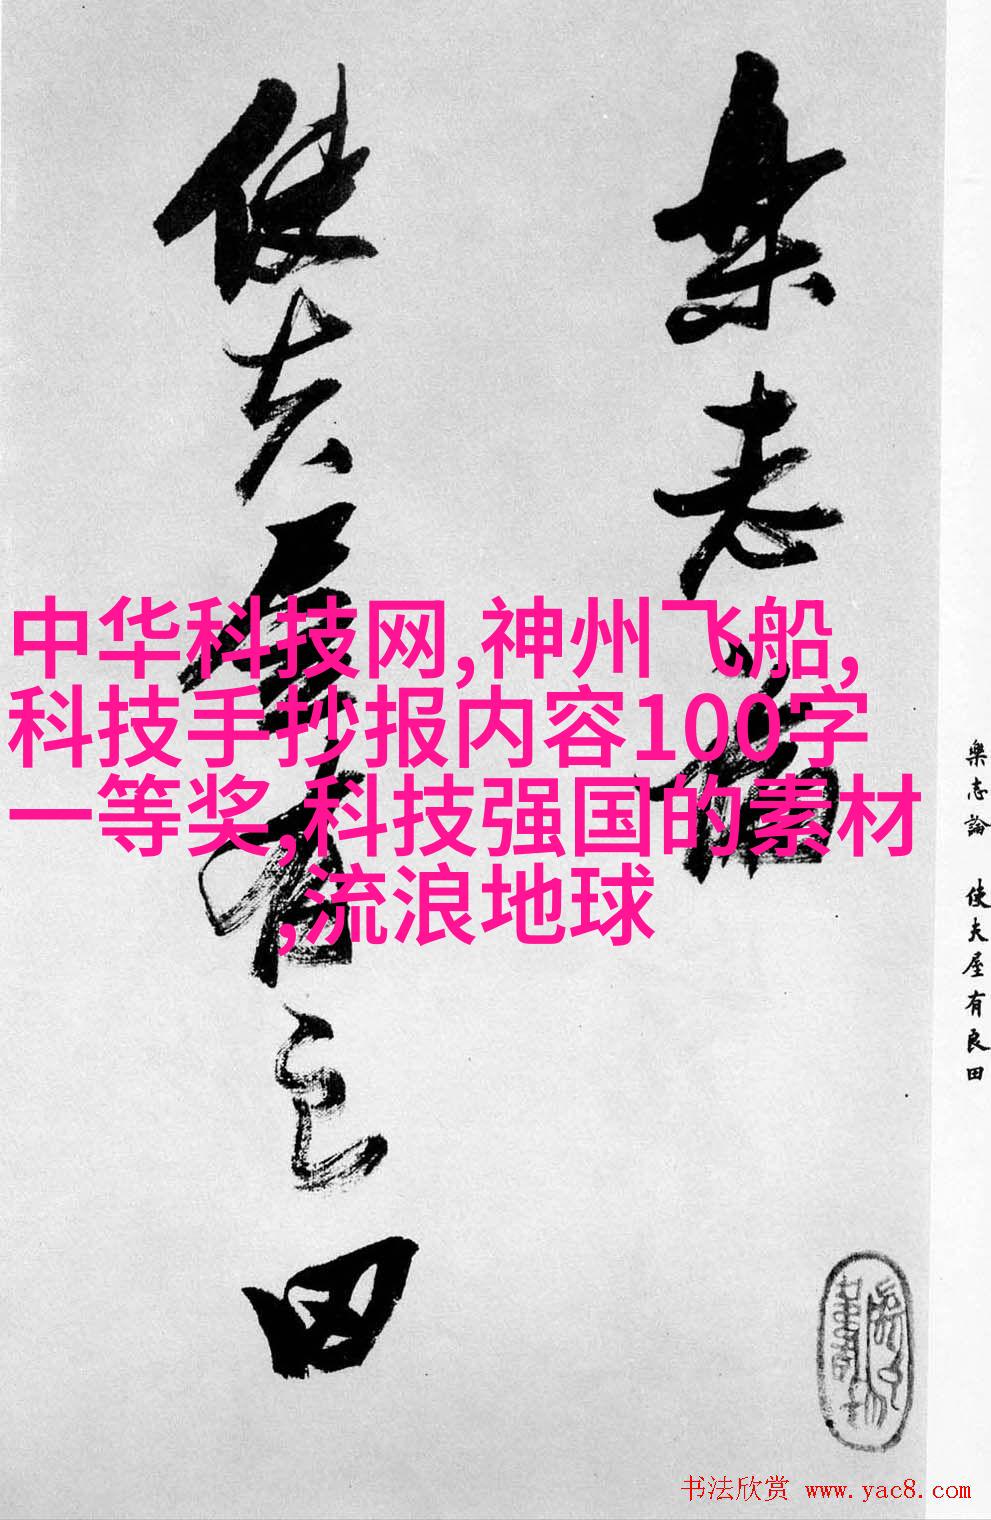 樂志論
使夫屋有良田
中华科技网,神州飞船,
科技手抄报内容100字
一等奖,科技强国的素材
,流浪地球
樂志論 使夫屋有良田
书法欣赏 www.yac8.com